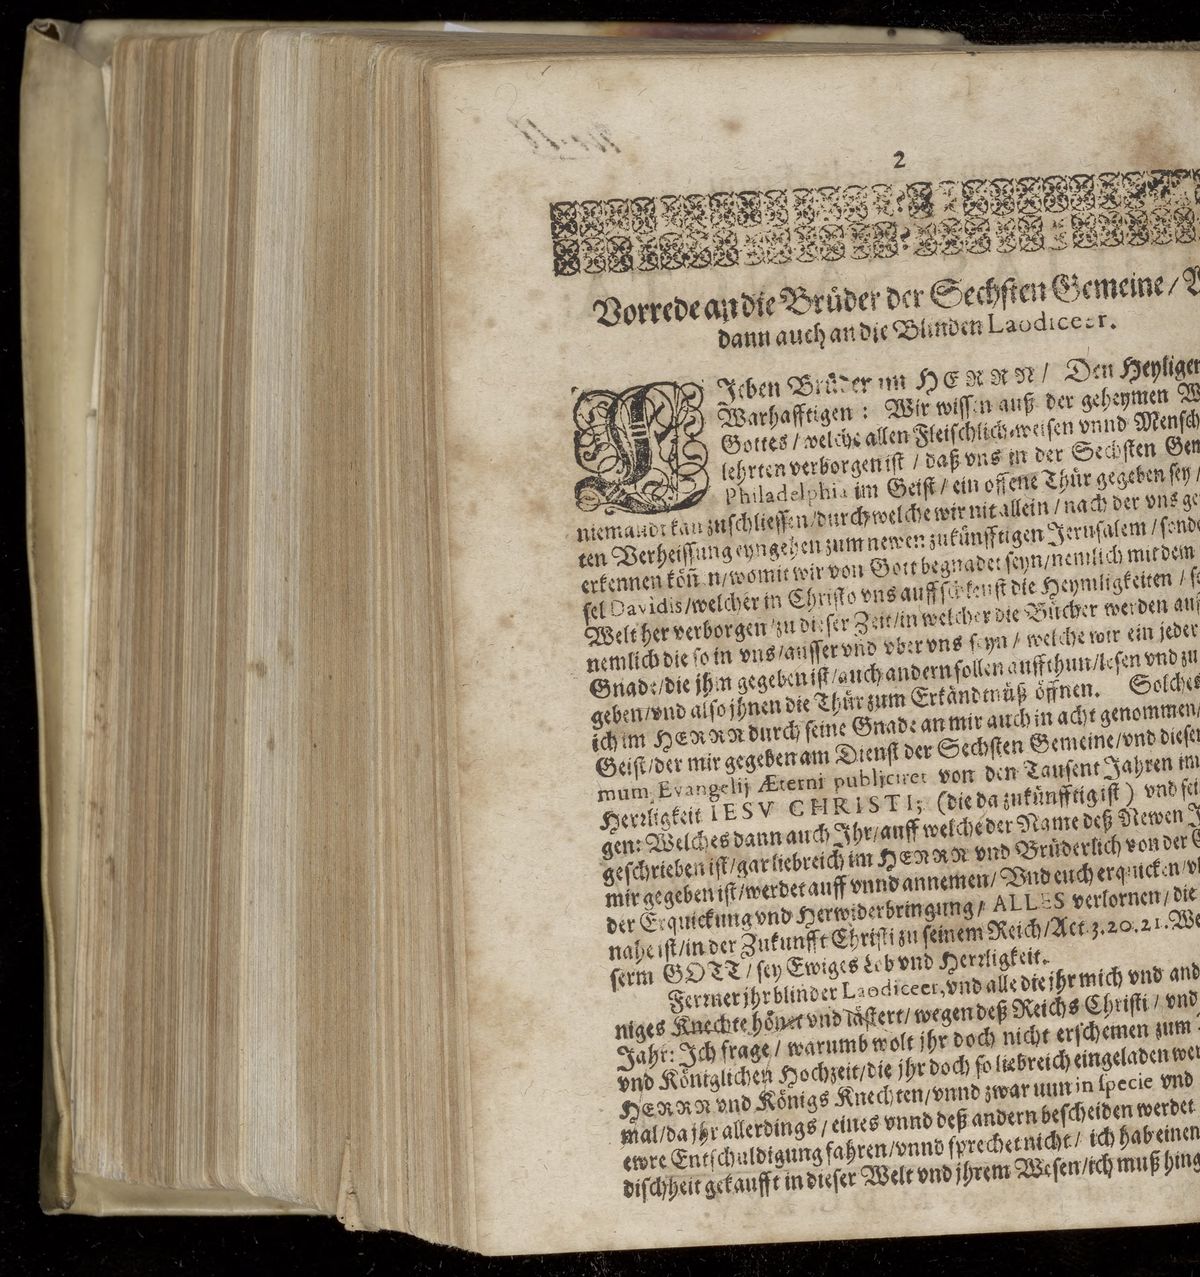 2
Vorrede an die Brüder der Sechsten Gemeine /
dann auch an die Blinden Laodiceer.
LIeben Brüder im HERRN / Den Heyligen
Warhafftigen : Wir wissen auß der geheymen
Gottes / welche allen Fleischlich-weisen vnnd Mensch
lehrten verborgen ist / daß vns in der Sechsten Gem
Philadelphia im Geist / ein offene Thür gegeben sey /
niemandt kan zuschliessen / durch welche wir nit allein / nach der vns ge
ten Verheissung eyngehen zum newen zukünfftigen Jerusalem / sonde
erkennen köñen / womit wir von Gott begnadet seyn / nemlich mit dem
sel Davidis / welcher in Christo vns auffschleust die Heymligkeiten / 
Welt her verborgen / zu dieser Zeit / in welcher die Bücher werden auf
nemlich die so in vns / ausser vnd vber vns seyn / welche wir ein jeder
Gnade / die jhm gegeben ist / auch andern sollen auffthun / lesen vnd zu
geben / vnd also jhnen die Thür zum Erkändtnüß öffnen. Solches
ich im HERRN durch seine Gnade an mir auch in acht genommen /
Geist / der mir gegeben am Dienst der Sechsten Gemeine / vnd dieser
mum Evangelij Æterni publiciret von den Tausent Jahren im
Herrligkeit IESV CHRISTI; (die da zukünfftig ist ) vnd sei
gen: Welches dann auch Jhr / auff welche der Name deß Newen J
geschrieben ist / gar liebreich im HERRN vnd Brüderlich von der G
mir gegeben ist / werdet auff vnnd annemen / Vnd euch erquicken /
der Erquickung vnd Herwiderbringung / ALLES verlornen / die
nahe ist / in der Zukunfft Christi zu seinem Reich / Act. 3. 20. 21. We
serm GOTT / sey Ewiges Lob vnd Herrligkeit.
Ferrner jhr blinder Laodiceer, vnd alle die jhr mich vnd and
niges Knechte hönet vnd lästert / wegen deß Reichs Christi / vnd
Jahr: Jch frage / warumb wolt jhr doch nicht erscheinen zum
vnd Königlichen Hochzeit / die jhr doch so liebreich eingeladen wer
HERRN vnd Königs Knechten / vnnd zwar nun in specie vnd
mal / da jhr allerdings / eines vnnd deß andern bescheiden werdet
ewre Entschuldigung fahren / vnnd sprechet nicht / ich hab einen
dischheit gekaufft in dieser Welt vnd jhrem Wesen / ich muß hing